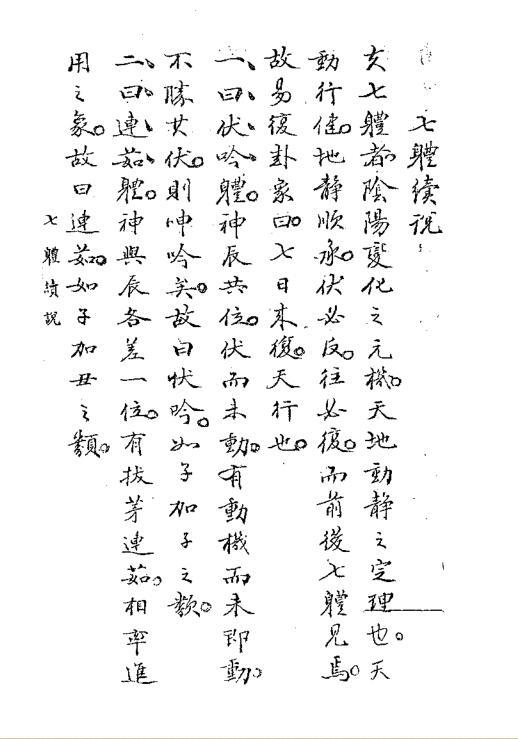 七體續說
夫七體者陰陽變化之元機。天地動靜之定理也。天
動行健。地靜順承。伏必反。往必復。而前後七體見焉。
故易復卦象曰。七日来復。天行也。
一、曰、伏、吟、體。神辰共位。伏而未動。有動機而未即動。
不勝其伏。則呻吟矣。故曰伏吟。如子加子之類。
二、曰、連、茹、體。神與辰各差一位。有拔茅連茹。相率進
用之象。故曰連茹。如子加丑之類。
七體續說